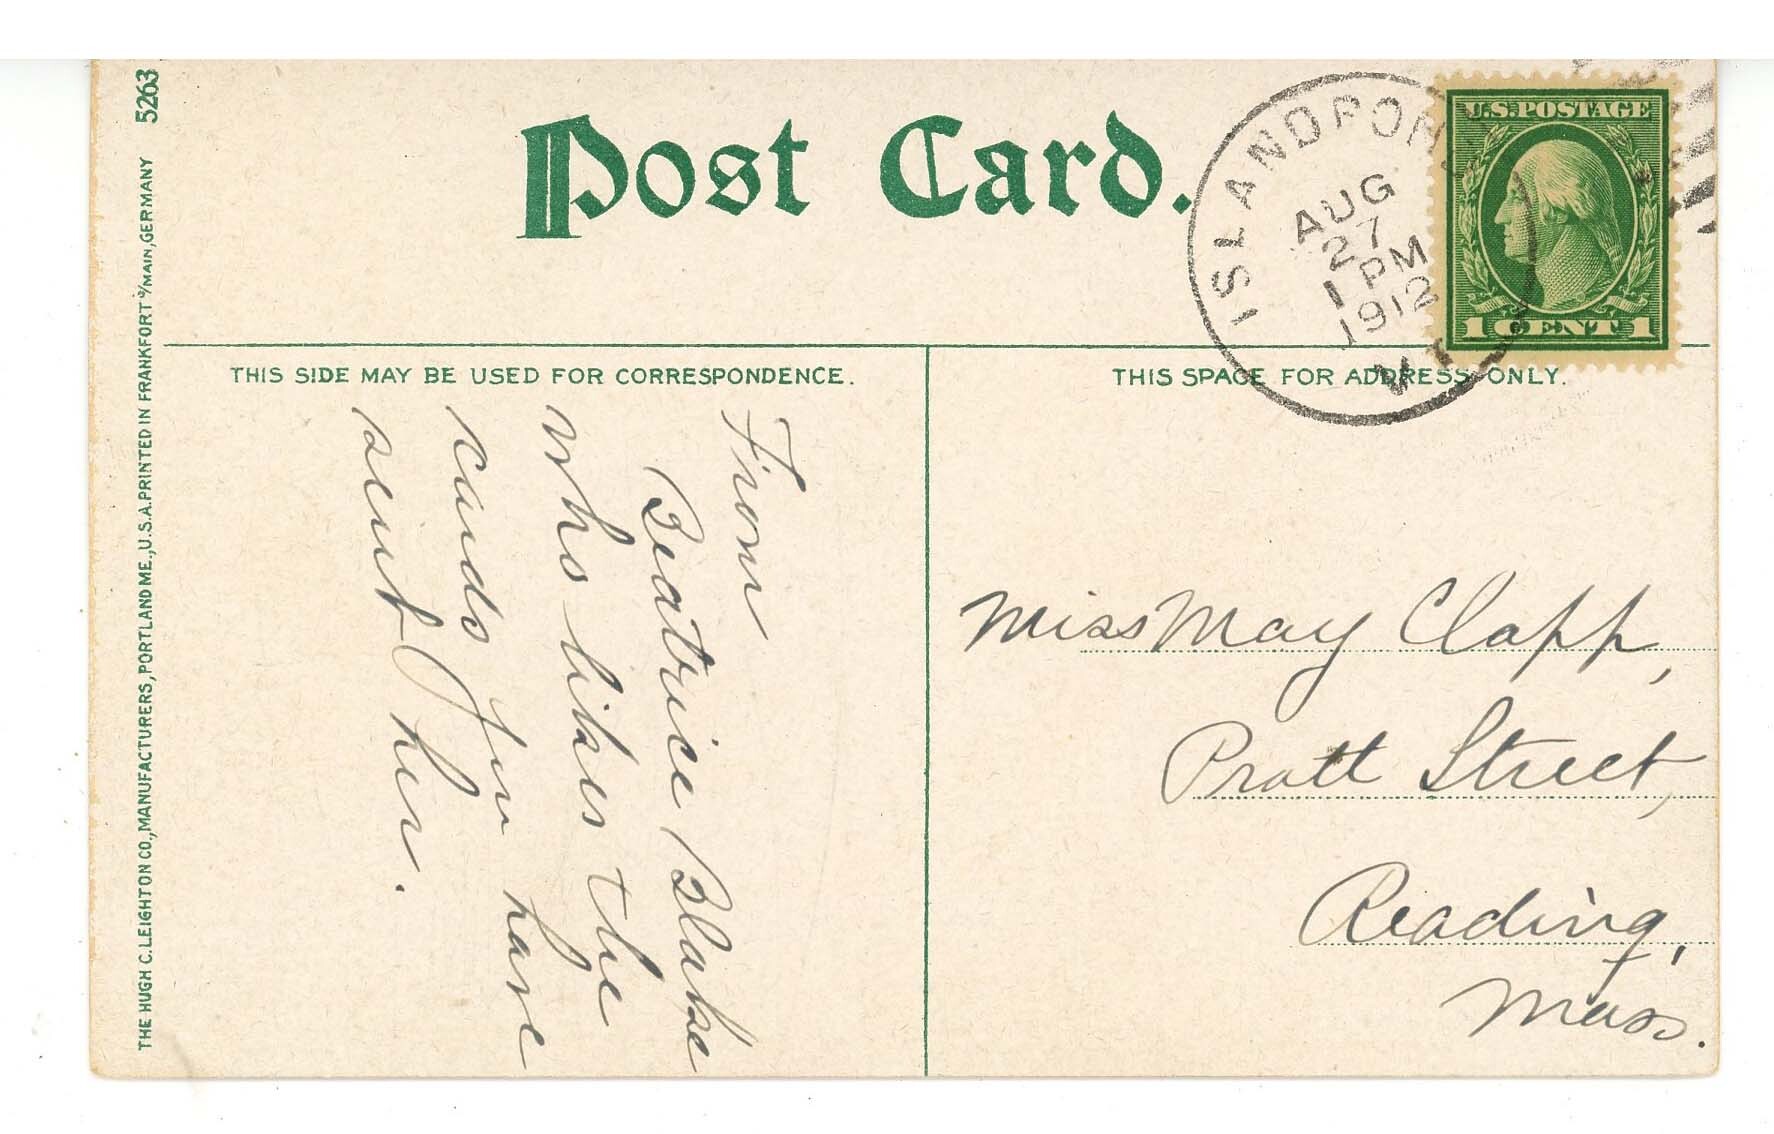 5263
THE HUGH C. LEIGHTON CO., MANUFACTURERS, PORTLAND ME., U.S.A. PRINTED IN FRANKFORT o/MAIN, GERMANY
Post Card.
ISLAND POND
AUG
27
1 PM
1912
VT
U.S. POSTAGE
1 CENT 1
THIS SIDE MAY BE USED FOR CORRESPONDENCE.
From
Beatrice Blake
who likes the
cards you have
sent her.
THIS SPACE FOR ADDRESS ONLY.
Miss May Clapp,
Pratt Street,
Reading,
Mass.